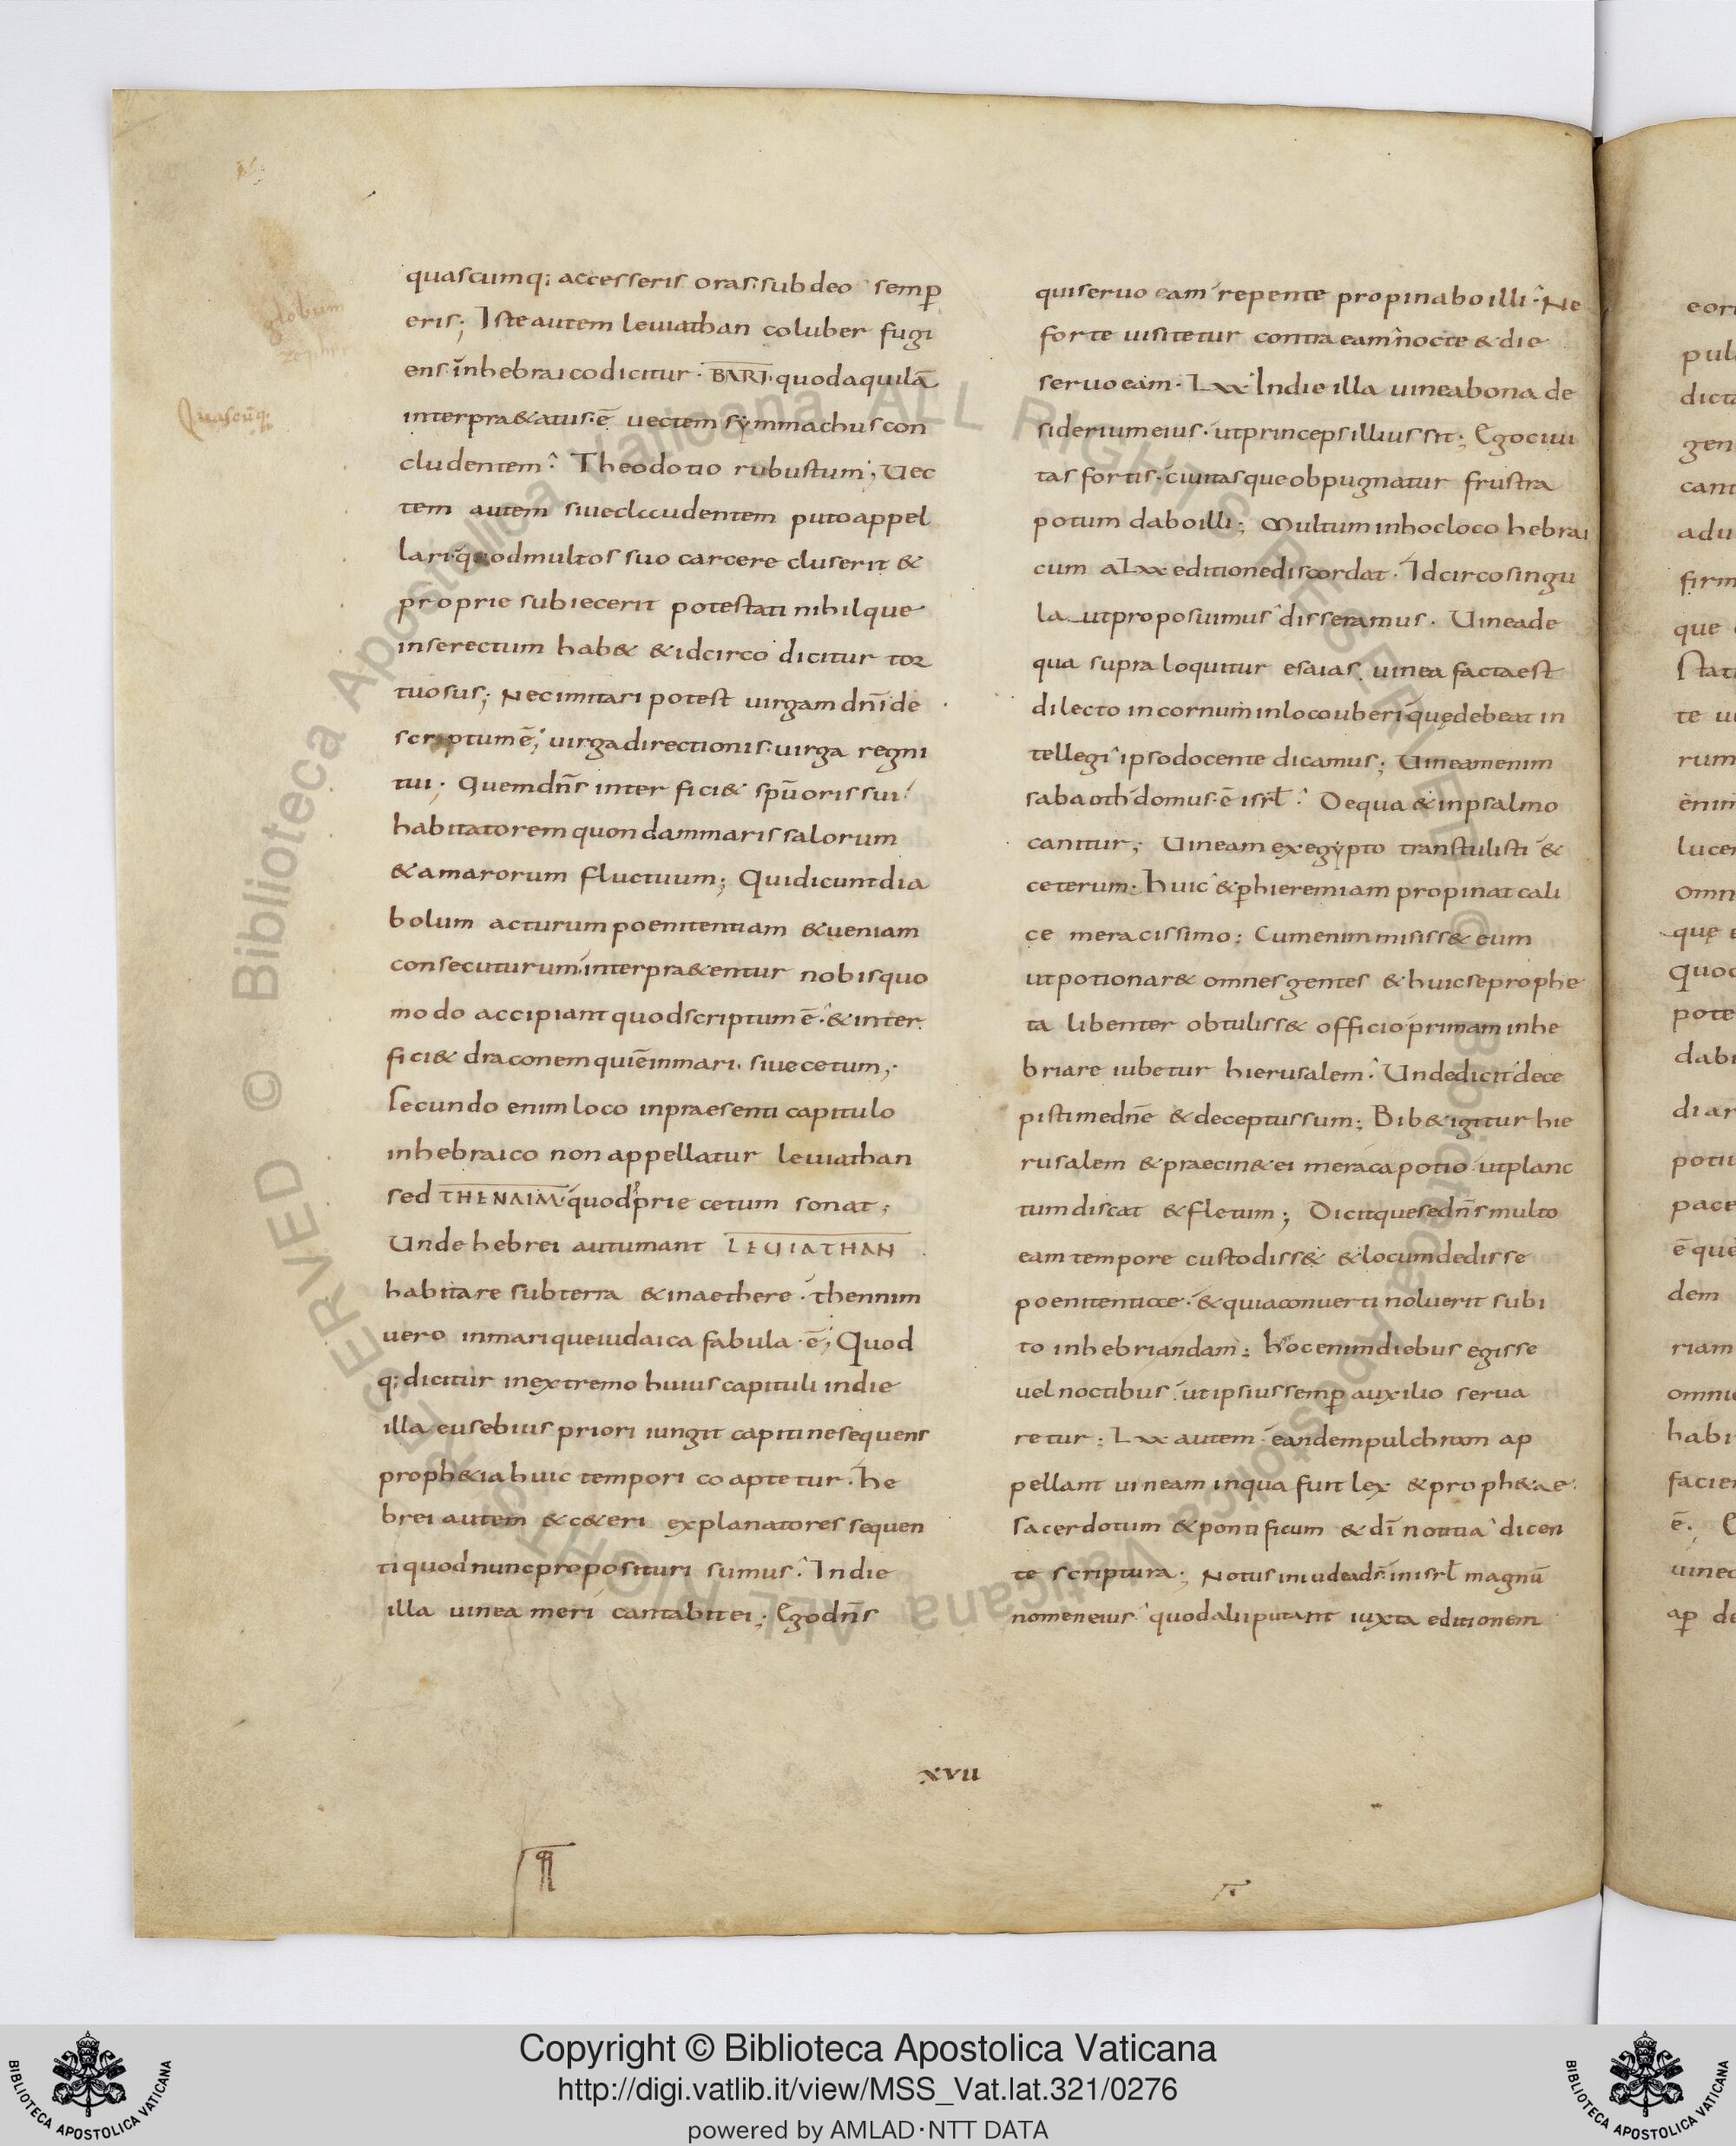 globum
Quascūq;
quascumq; accesseris oras. sub deo semp̲
eris; Iste autem leuiathan coluber fugi
ens. in hebraico dicitur. BARI. quod aquilā
interpr&atus. ē uectem symmachus con
cludentem. Theodotio robustum; Uec
tem autem siue cluudentem puto appel
lari. quod multos suo carcere cluserit &
proprie subiecerit potestati nihilque
in se rectum hab& & idcirco dicitur tor
tuosus; Nec imitari potest uirgam dn̄i de
scriptum ē; uirga directionis. uirga regni
tui; Quem dn̄s interfici& spū oris sui.
habitatorem quondam maris salorum
& amarorum fluctuum; Qui dicunt dia
bolum acturum poenitentiam & ueniam
consecuturum. interpr&entur nobis quo
modo accipiant quod scriptum ē. & inter
fici& draconem qui ē in mari. siue cetum;
Secundo enim loco in praesenti capitulo
in hebraico non appellatur leuiathan
sed THENAIM. quod p̲prie cetum sonat;
Unde hebrei autumant LEUIATHAN
habitare sub terra & in aethere. thennim
uero in mari que iudaica fabula. ē; Quod
q; dicitur in extremo huius capituli in die
illa eusebius priori iungit capiti ne sequens
proph&ia huic tempori coaptetur. he
brei autem & c&eri explanatores sequen
ti quod nunc proposituri sumus. In die
illa uinea meri cantabit ei; Ego dn̄s
qui seruo eam repente propinabo illi. Ne
forte uisitetur contra eam nocte & die
seruo eam. Lxx In die illa uinea bona de
siderium eius. ut princeps illius sit; Ego ciui
tas fortis. ciuitas que obpugnatur frustra
potum dabo illi; Multum in hoc loco hebrai
cum a Lxx editione discordat. Idcirco singu
la ut proposuimus disseramus. Uinea de
qua supra loquitur esaias. uinea facta est
dilecto in cornum in loco uberi quę debeat in
tellegi ipso docente dicamus; Uineam enim
sabaoth domus. ē isrl̄. De qua & in psalmo
canitur; Uineam ex egypto transtulisti &
ceterum. huic & p̲ hieremiam propinat cali
ce meracissimo; Cum enim misiss& eum
ut potionar& omnes gentes & huic se prophe
ta libenter obtuliss& officio primam inhe
briare iubetur hierusalem. Unde dicit dece
pisti me dn̄e & deceptus sum; Bib& igitur hie
rusalem & praecin& ei meraca potio ut planc
tum discat & fletum; Dicitque se dn̄s multo
eam tempore custodiss& & locum dedisse
poenitentiae. & quia conuerti noluerit subi
to inhebriandam; hoc enim diebus egisse
uel noctibus ut ipsius semp̲ auxilio serua
retur; Lxx autem eandem pulchram ap
pellant uineam in qua fuit lex & proph&ae
sacerdotum & pontificum & dī notitia dicen
te scriptura; Notus in iudea ds̄ in isrl̄ magnū
nomen eius. quod alii putant iuxta editionem
XVII
Copyright © Biblioteca Apostolica Vaticana
http://digi.vatlib.it/view/MSS_Vat.lat.321/0276
powered by AMLAD·NTT DATA